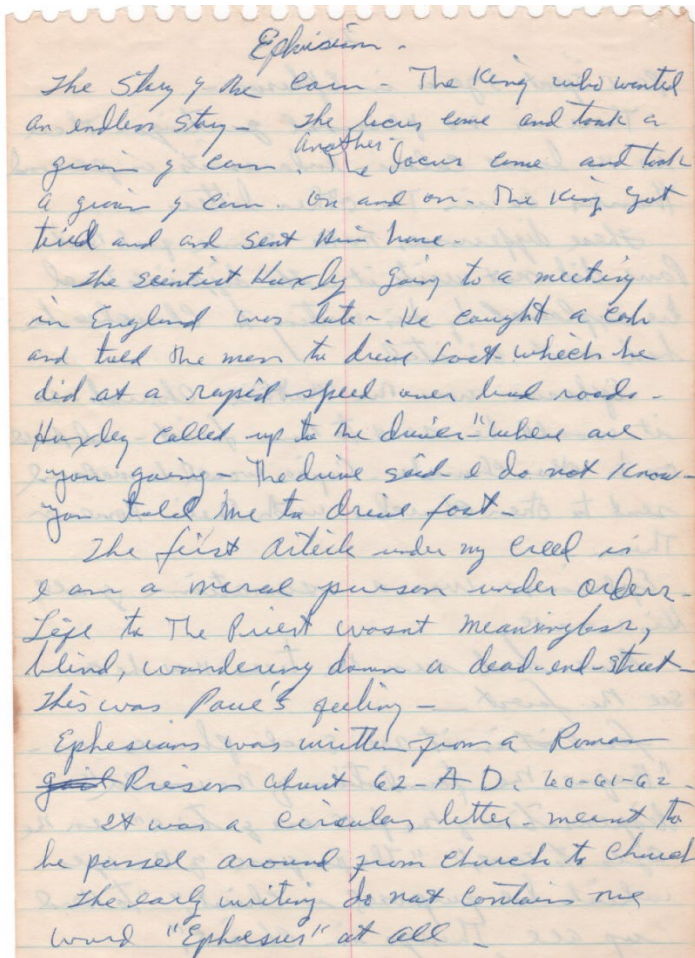 Ephisian -
The Story of the Corn - The King who wanted
an endless story - The locus come and took a
grain of corn. Another The locus come and took
a grain of corn. on and on. The King got
tired and and sent him home -
The scientist Huxley going to a meeting
in England was late - He caught a cab
and told the man to drive fast which he
did at a rapid speed over bad roads -
Huxley called up to the driver - "where are
you going - The drive said - I do not know -
you told me to drive fast -
The first article under my creed is
I am a moral person under orders -
Life to The Priest wasnt meaningless,
blind, wandering down a dead-end-street -
This was Paul's feeling -
Ephesians was written from a Roman
Prison about 62 - A D. 60-61-62 -
It was a circular letter - meant to
be passed around from church to church
The early writing do not contain the
word "Ephesus" at all -